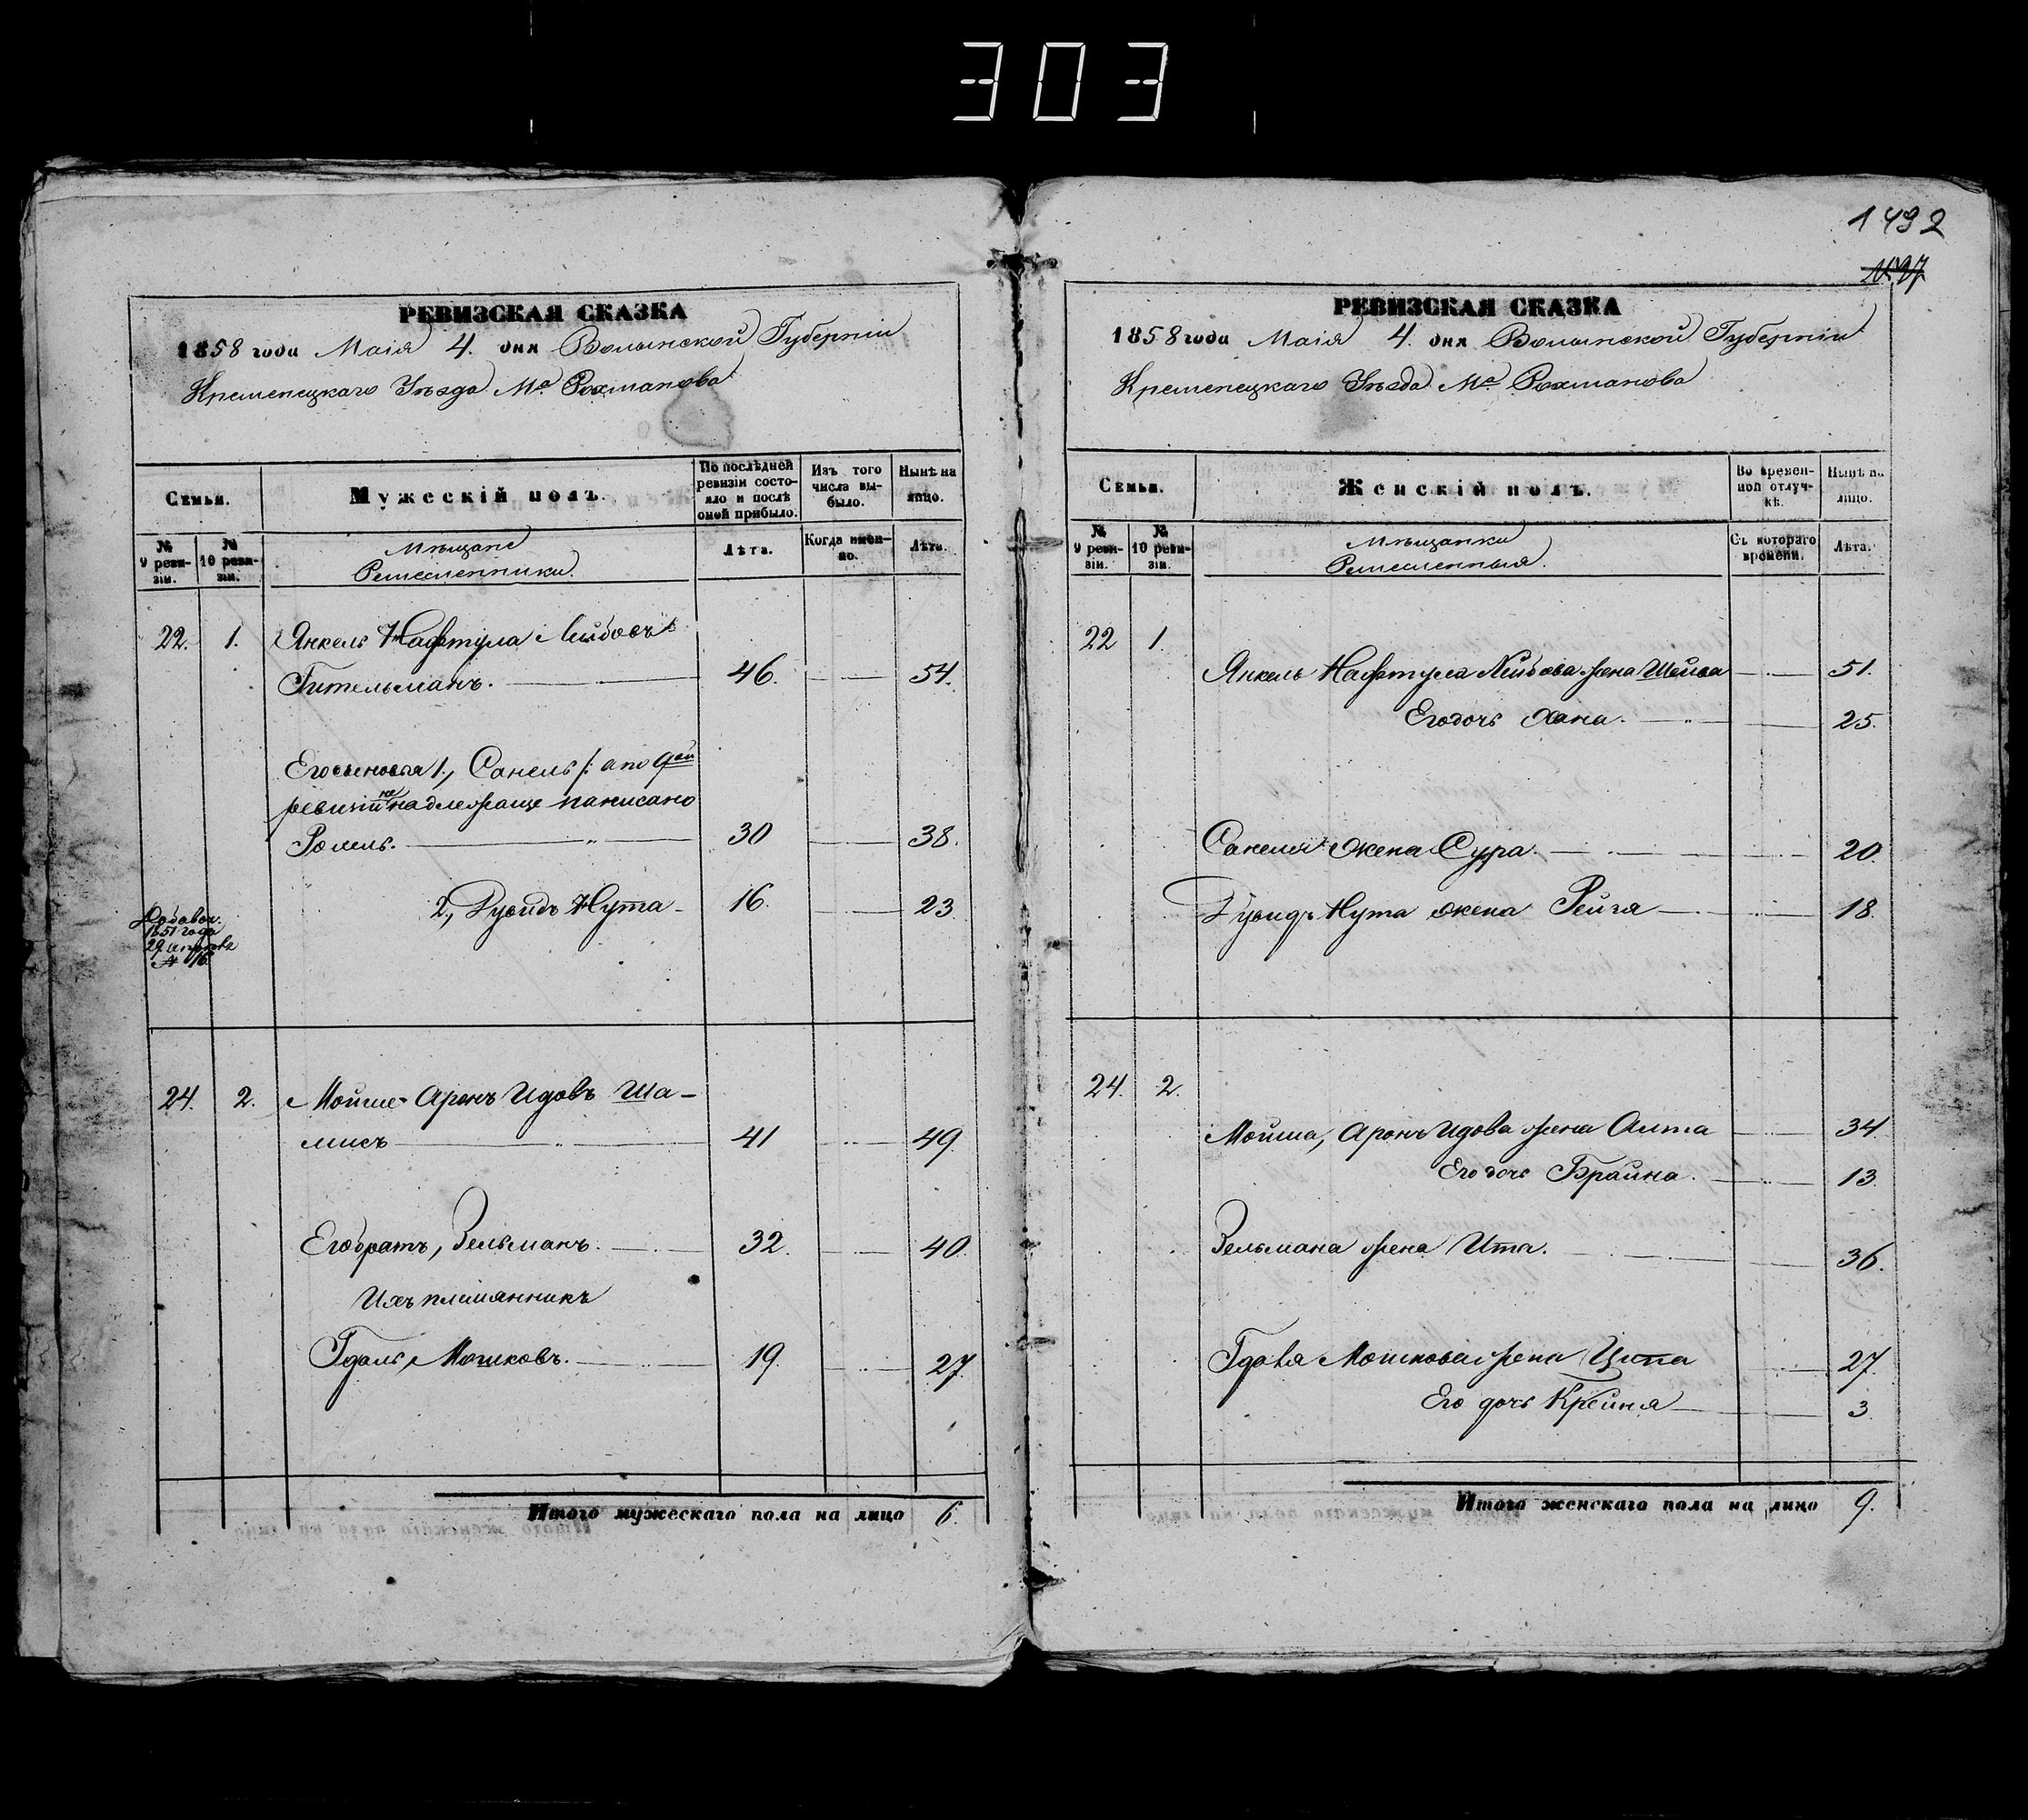 303
РЕВИЗСКАЯ СКАЗКА
1858 года Маія 4. дня Волынской Губерніи
Кременецкаго Уѣзда Мᵃ Рохманова
Семьи.
Мужескій полъ.
По послѣдней ревизіи состояло и послѣ оной прибыло.
Изъ того числа выбыло.
Нынѣ на лицо.
№ 9 ревизіи.
№ 10 ревизіи.
Мѣщане Ремесленники.
Лѣта.
Когда именно.
Лѣта.
22. 1. Янкель Нафтула Лейбовъ
Гительманъ. 46. 54.
Его сыновья 1., Санель /: а по 9ей
ревизіи не надлежаще написано
Ромель. 30 38.
2, Дувидъ Нута 16. 23
Добавоч.
1851 года
№ 16
24. 2. Мойше Аронъ Идовъ Ша-
мисъ 41 49.
Его братъ, Зельманъ. 32. 40.
Ихъ племянникъ
Гдаль, Мошковъ. 19. 27
Итого мужескаго пола на лицо 6.
1492
РЕВИЗСКАЯ СКАЗКА
1858 года Маія 4. дня Волынской Губерніи
Кременецкаго Уѣзда Мᵃ Рохманова
Семьи.
Женскій полъ.
Во временной отлучкѣ.
Нынѣ на лицо.
№ 9 ревизіи.
№ 10 ревизіи.
Мѣщанки Ремесленныя.
Съ котораго времени.
Лѣта.
22 1.
Янкель Нафтула Лейбова жена Шейва 51.
Его дочь Хана. 25.
Санеля жена Сура. 20.
Дувидъ Нута жена Рейзя 18.
24. 2.
Мойша, Аронъ Идова жена Алта 34
Его дочь Брайна. 13
Зельмана жена Ита. 36.
Гдаля Мошкова жена Ципа 27.
Его дочь Крейня 3
Итого женскаго пола на лицо 9.